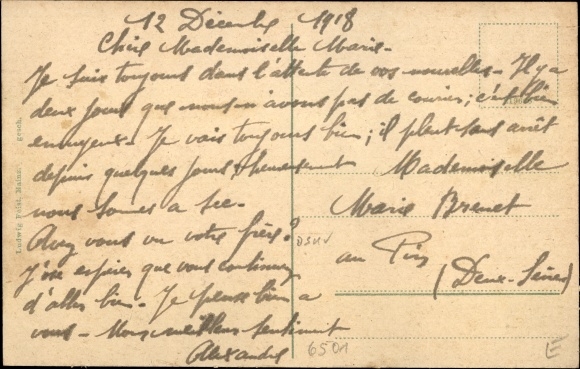 12 Décembre 1918
Chère Mademoiselle Marie-
Je suis toujours dans l'attente de vos nouvelles - Il y a
deux jours que nous n'avons pas de courrier; c'est bien
ennuyeux - Je vais toujours bien; il pleut sans arrêt
depuis quelques jours, heureusement
nous sommes à sec.
Avez vous vu votre frère?
J'ose espérer que vous continuez
d'aller bien - Je pense bien à
vous - Mes meilleurs sentiments
Alexandre
Mademoiselle
Marie Brenet
au Pin
(Deux-Sèvres)
6501
E
Ludwig Feist, Mainz. gesch.